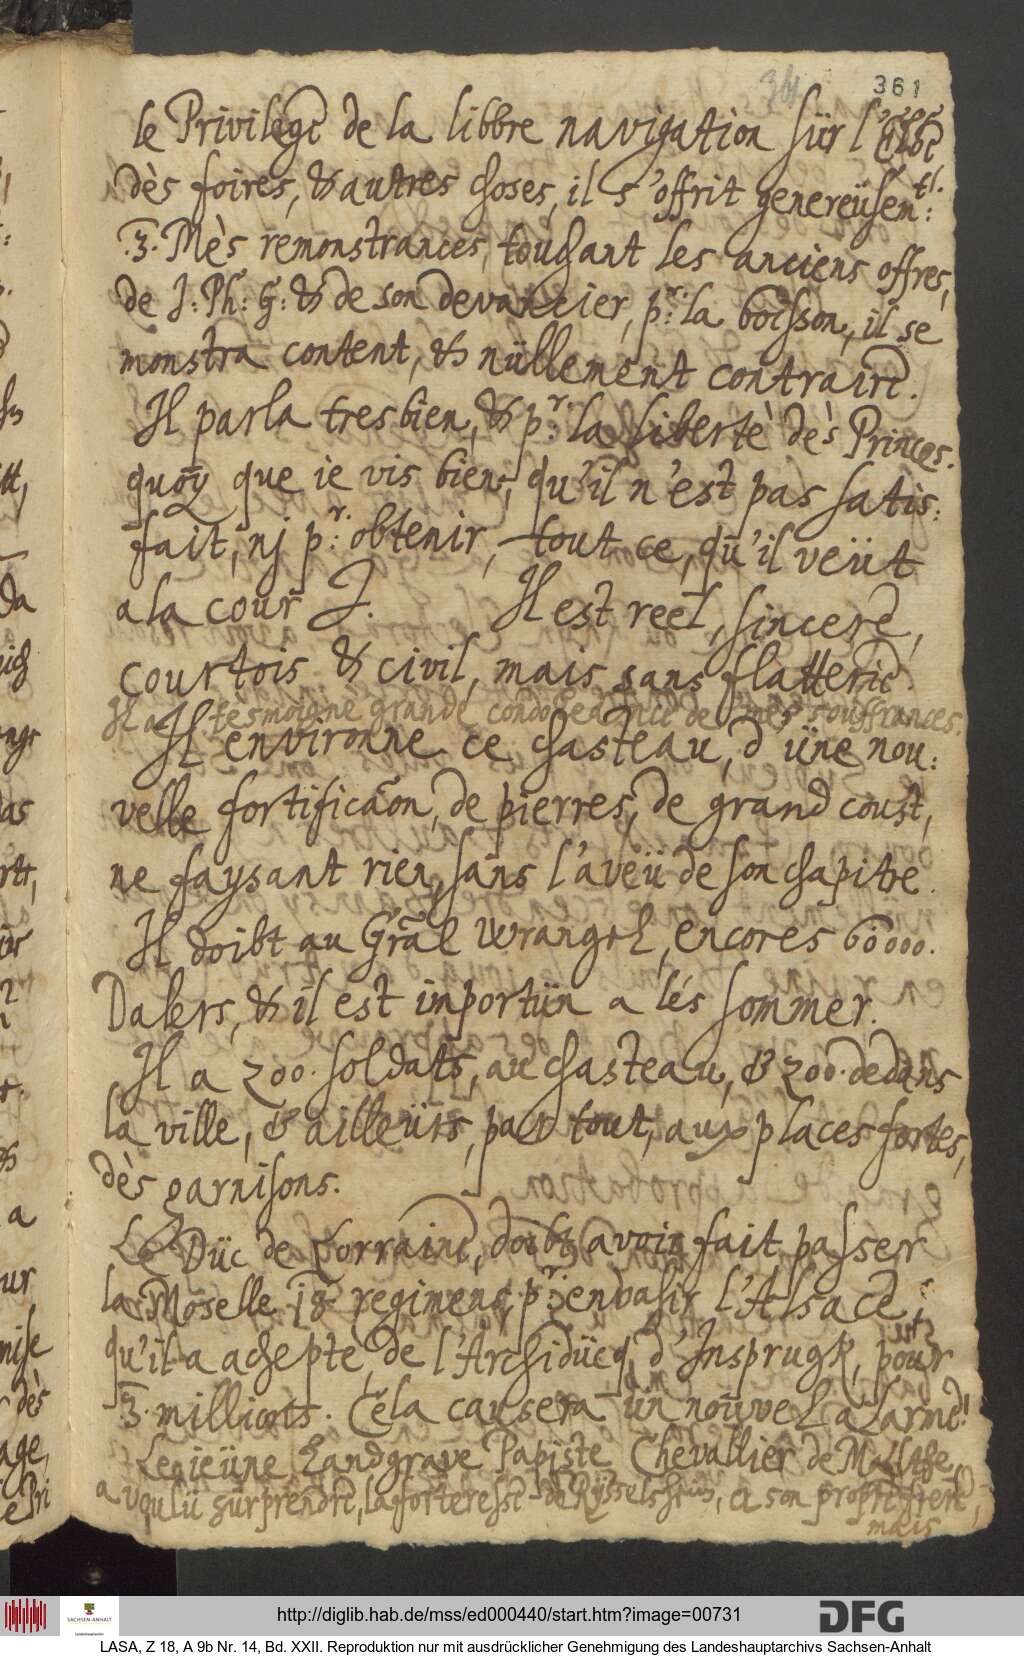 361
le Privilege de la libbre navigation sür l'Elbe,
dès foires, & autres choses, il s'offrit genereüsen:tt.
.3. Mès remonstrances, touchant les anciens offres,
de J: Ph: G: & de son devancier, p:r la boisson, il se
monstra content, & nüllement contraire.
Il parla tresbien, & p:r la libertè dès Princes.
quoy que ie vis bien, qu'il n'est pas satis:
fait, nj p:r obtenir, tout ce, qu'il veüt
a la cour J. Il est reel, sincere,
courtois & civil, mais sans flatterie.
Il a tèsmoignè grande condoleance de mes souffrances.
Il environne ce chasteau, d'üne nou:
velle fortificaon, de pierres, de grand coust,
ne faysant rien, sans l'aveü de son chapitre.
Il doibt au Gral Wrangel, encores 60000.
Dalers, & il est importün a lés sommer.
Il a 200. soldats, au chasteau, & 200. dedans
la ville, & ailleürs, par tout, aux places fortes,
dès garnisons.
Le Düc de Lorraine, doibt avoir fait passer
la Moselle 18 regimens, p:r envahir l'Alsace,
qu'il a acheptè, de l'Archidücq, d'Insprugk, pour
3. millions. Cela causera un nouvel alarme!
Le ieüne Landgrave Papiste Chevallier de Malthe,
a voulü surprendre, la forteresse de Rüsselsheim, a son propre frere,
mais
http://diglib.hab.de/mss/ed000440/start.htm?image=00731
DFG
SACHSEN-ANHALT
LASA, Z 18, A 9b Nr. 14, Bd. XXII. Reproduktion nur mit ausdrücklicher Genehmigung des Landeshauptarchivs Sachsen-Anhalt